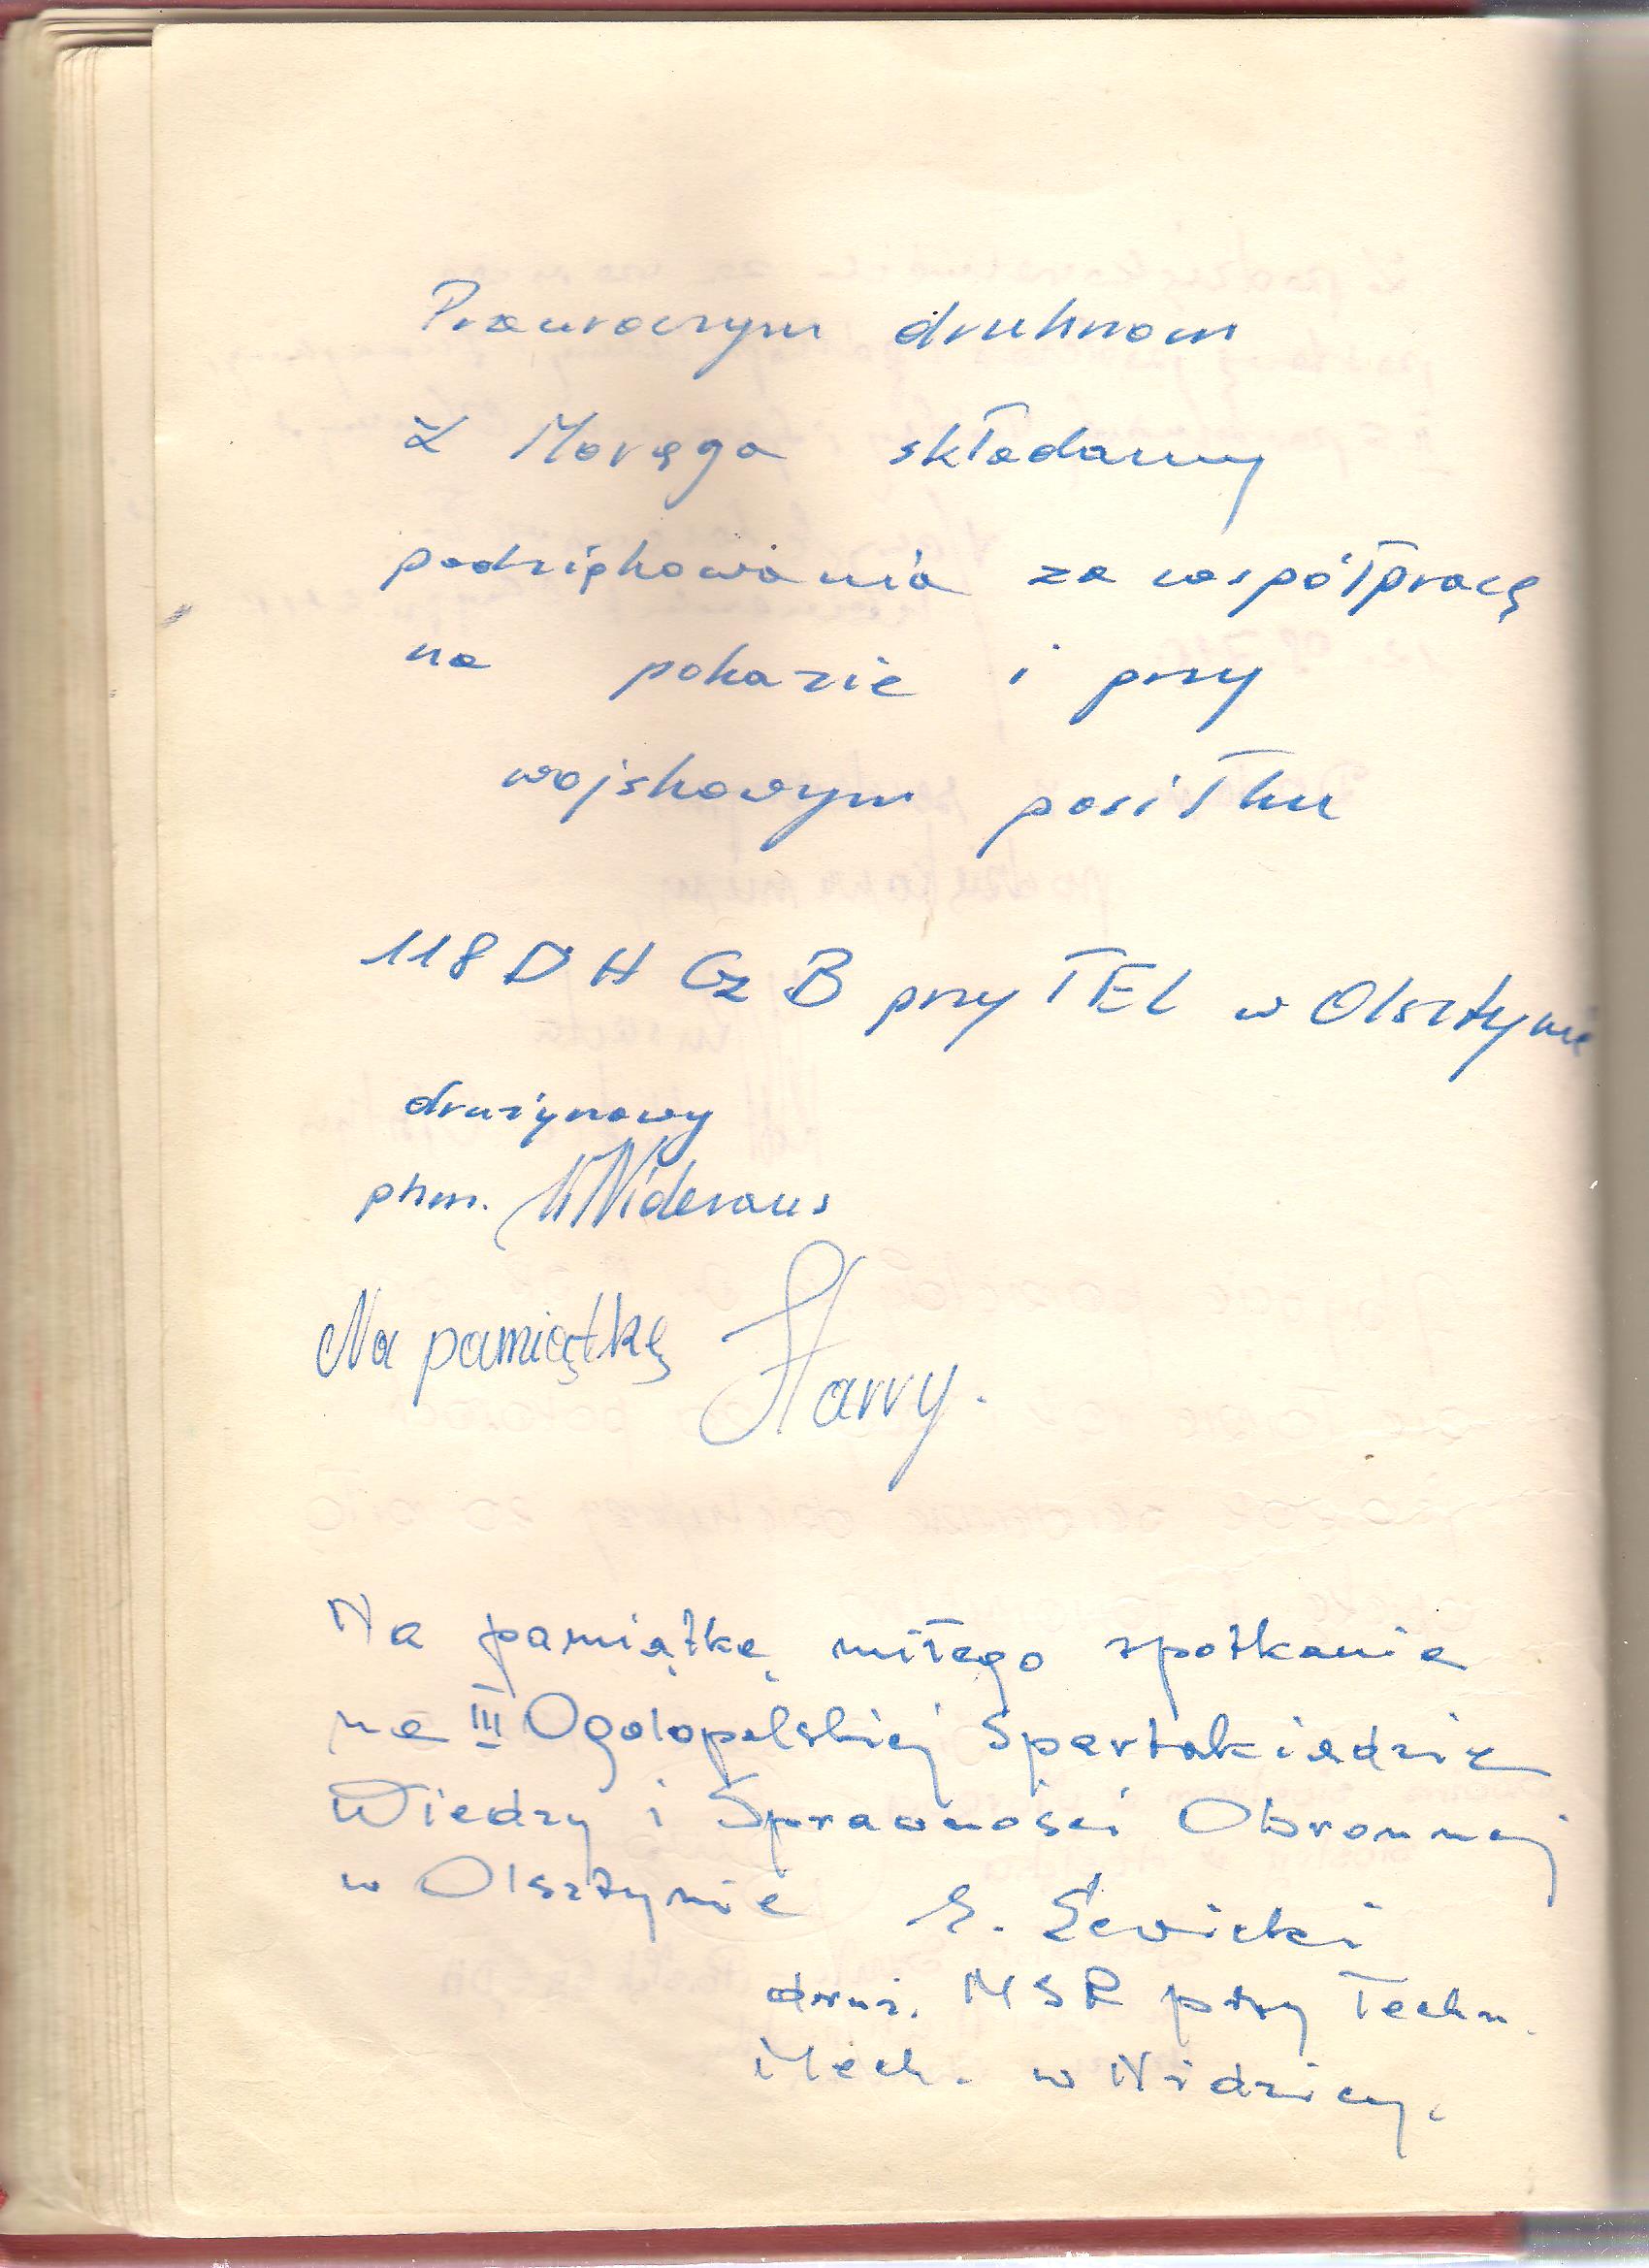 Prauroczym druhnom
z Morąga składamy
podziękowania za współpracę
na pokazie i przy
wojskowym posiłku
118 DH Cz B przy TEL w Olsztynie
drużynowy
phm. Nideraus
Na pamiątkę Harry.
Na pamiątkę miłego spotkania
na III Ogolopolskiej Spartakiadzie
Wiedzy i Sprawności Obronnej
w Olsztynie E. Lewicki
druż. MSR przy Techn.
Mech. w Nidzicy.